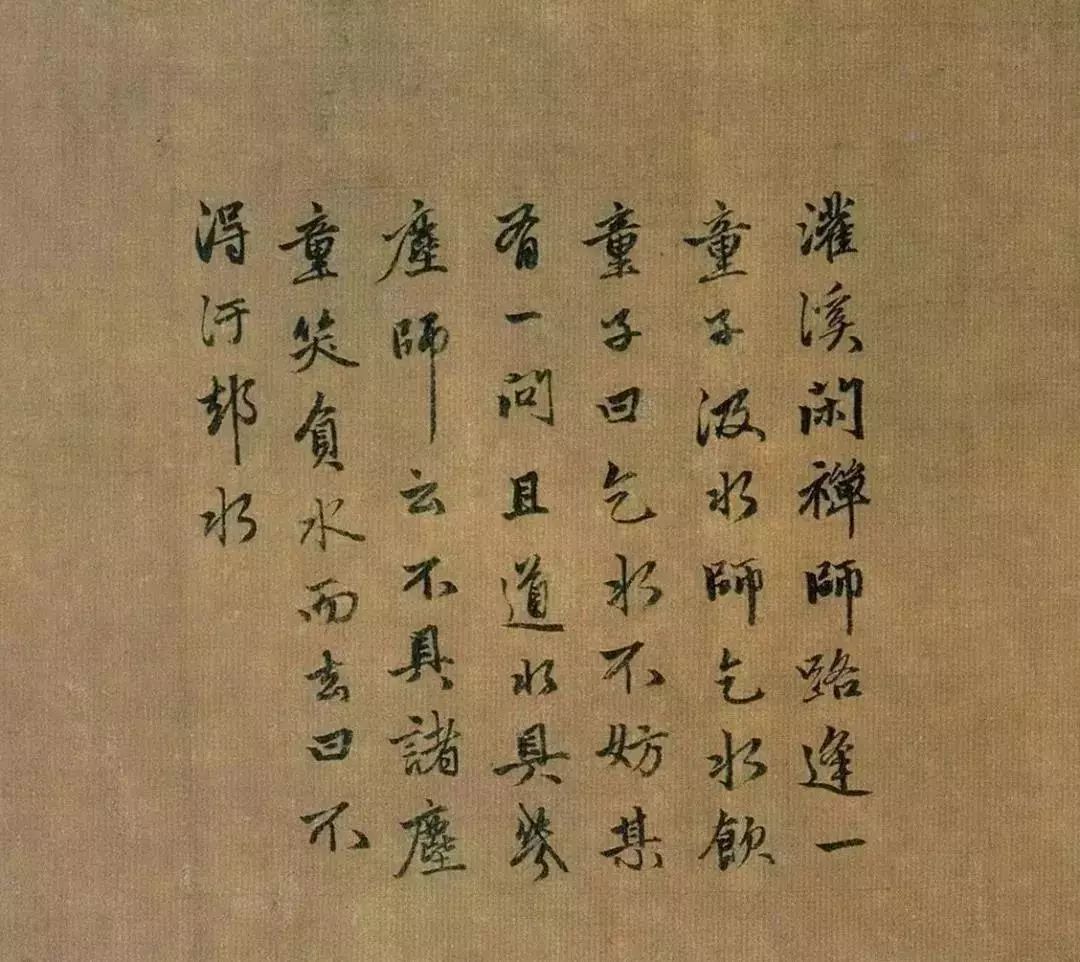 灌溪闲禪師路逢一
童子汲水師乞水飲
童子曰乞水不妨某
有一問且道水具幾
塵師云不具諸塵
童笑負水而去曰不
得汙却水